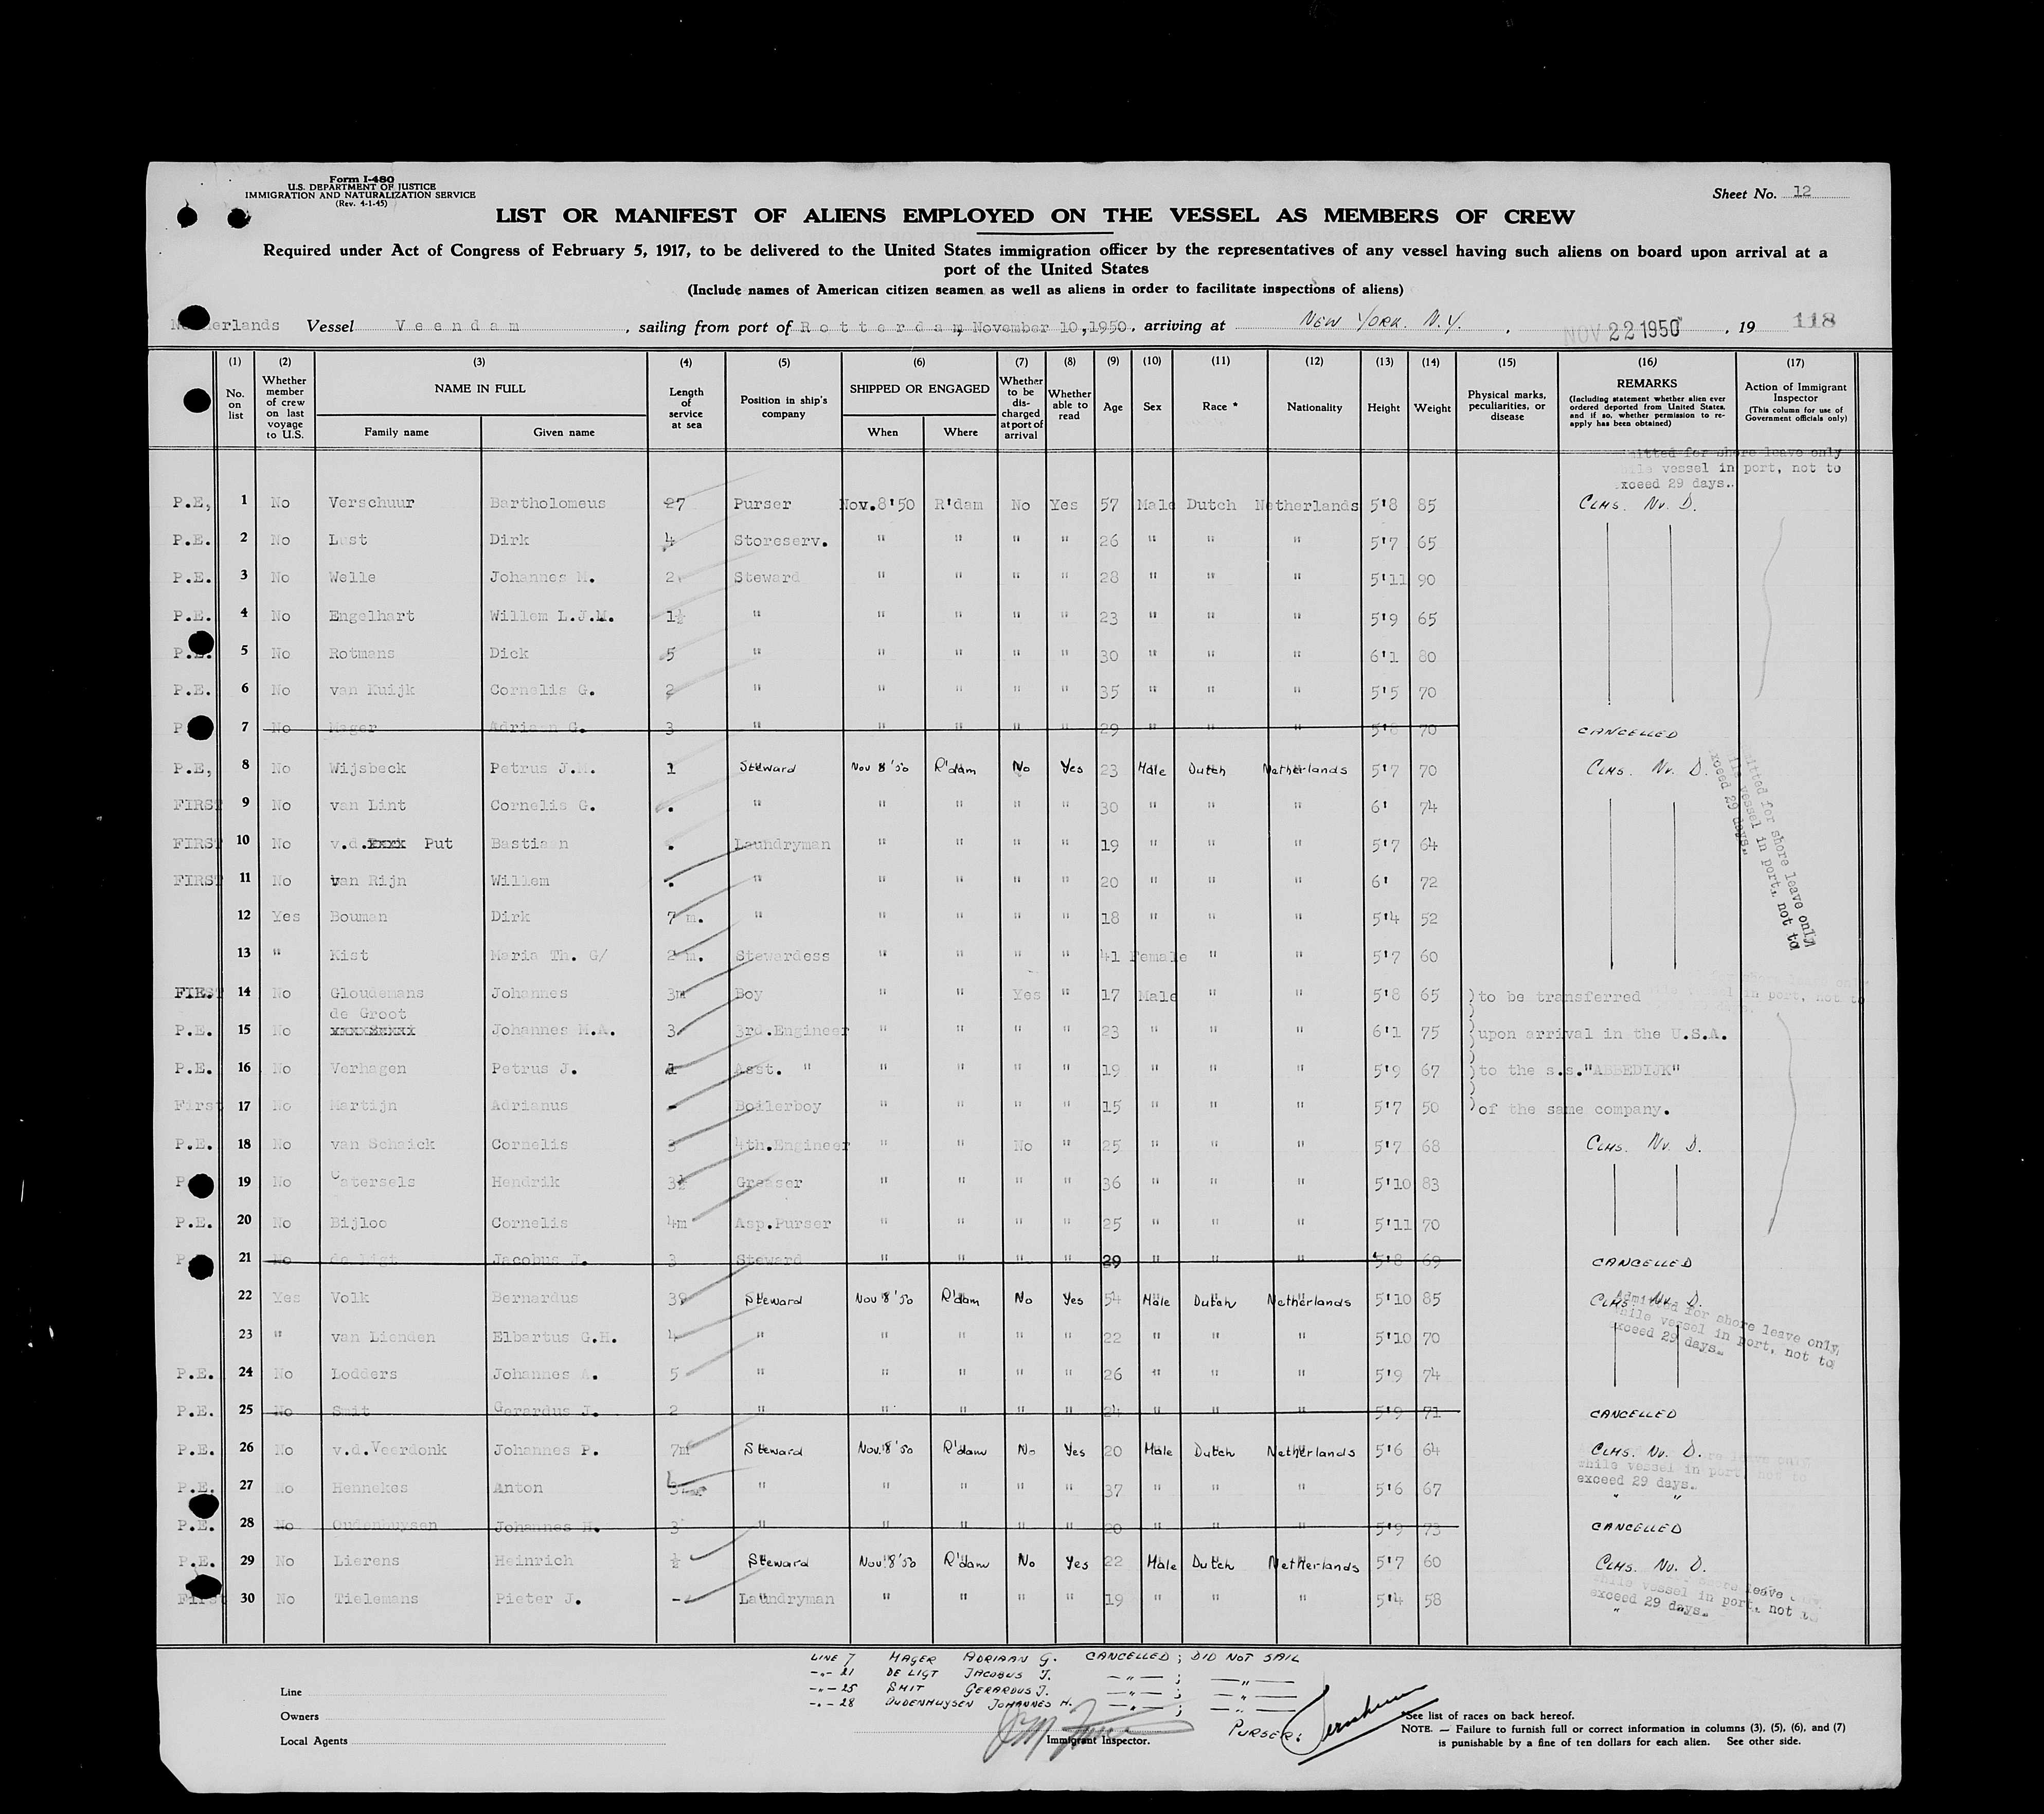 Form I-480
U.S. DEPARTMENT OF JUSTICE
IMMIGRATION AND NATURALIZATION SERVICE
(Rev. 4-1-45)
Sheet No. 12
LIST OR MANIFEST OF ALIENS EMPLOYED ON THE VESSEL AS MEMBERS OF CREW
Required under Act of Congress of February 5, 1917, to be delivered to the United States immigration officer by the representatives of any vessel having such aliens on board upon arrival at a
port of the United States
(Include names of American citizen seamen as well as aliens in order to facilitate inspections of aliens)
Netherlands Vessel Veendam, sailing from port of Rotterdam, November 10,1950, arriving at NEW YORK. N.Y., NOV 22 1950, 19 118
(1) (2) (3) (4) (5) (6) (7) (8) (9) (10) (11) (12) (13) (14) (15) (16) (17)
No. on list
Whether member of crew on last voyage to U.S.
NAME IN FULL
Family name Given name
Length of service at sea
Position in ship's company
SHIPPED OR ENGAGED
When Where
Whether to be discharged at port of arrival
Whether able to read
Age
Sex
Race *
Nationality
Height
Weight
Physical marks, peculiarities, or disease
REMARKS
(Including statement whether alien ever ordered deported from United States, and if so, whether permission to reapply has been obtained)
Action of Immigrant Inspector
(This column for use of Government officials only)
mitted for shore leave only
ile vessel in port, not to
xceed 29 days.
P.E, 1 No Verschuur Bartholomeus 27 Purser Nov.8'50 R'dam No Yes 57 Male Dutch Netherlands 5'8 85 CLHS. NV. D.
P.E. 2 No Lust Dirk 4 Storeserv. " " " " 26 " " " 5'7 65
P.E. 3 No Welle Johannes M. 2 Steward " " " " 28 " " " 5'11 90
P.E. 4 No Engelhart Willem L.J.M. 1½ " " " " " 23 " " " 5'9 65
P.E. 5 No Rotmans Dick 5 " " " " " 30 " " " 6'1 80
P.E. 6 No van Kuijk Cornelis G. 2 " " " " " 35 " " " 5'5 70
P 7 No Mager Adriaan G. 3 " " " " " 29 " " " 5'8 70 CANCELLED
P.E, 8 No Wijsbeck Petrus J.M. 1 Steward Nov 8'50 R'dam No Yes 23 Male Dutch Netherlands 5'7 70 CLHS. NV. D.
FIRST 9 No van Lint Cornelis G. . " " " " " 30 " " " 6' 74
FIRST 10 No v.d. Put Bastiaan . Laundryman " " " " 19 " " " 5'7 64
FIRST 11 No van Rijn Willem . " " " " " 20 " " " 6' 72
12 Yes Bouman Dirk 7 m. " " " " " 18 " " " 5'4 52
13 " Kist Maria Th. G/ 2 m. Stewardess " " " " 41 Female " " 5'7 60
mitted for shore leave only
ile vessel in port, not to
xceed 29 days.
14 No Gloudemans Johannes 3m Boy " " Yes " 17 Male " " 5'8 65 )to be transferred
de Groot
P.E. 15 No Johannes M.A. 3 3rd.Engineer " " " " 23 " " " 6'1 75 )upon arrival in the U.S.A.
P.E. 16 No Verhagen Petrus J. 1 Asst. " " " " " 19 " " " 5'9 67 )to the s.s."ABBEDIJK"
First 17 No Martijn Adrianus - Boilerboy " " " " 15 " " " 5'7 50 )of the same company.
P.E. 18 No van Schaick Cornelis 3 4th.Engineer " " No " 25 " " " 5'7 68 CLHS. NV. D.
P 19 No Catersels Hendrik 3½ Greaser " " " " 36 " " " 5'10 83
P.E. 20 No Bijloo Cornelis 4m Asp.Purser " " " " 25 " " " 5'11 70
P 21 No de Ligt Jacobus J. 3 Steward " " " " 29 " " " 5'8 69 CANCELLED
22 Yes Volk Bernardus Steward Nov 8'50 R'dam No Yes 54 Male Dutch Netherlands 5'10 85 CLHS. NV. D.
Admitted for shore leave only,
while vessel in port, not to
exceed 29 days.
23 " van Lienden Elbartus G.H. 4 " " " " " 22 " " " 5'10 70
P.E. 24 No Lodders Johannes A. 5 " " " " " 26 " " " 5'9 74
P.E. 25 No Smit Gerardus J. 2 " " " " " 24 " " " 5'9 71 CANCELLED
P.E. 26 No v.d.Veerdonk Johannes P. 7m Steward Nov.8'50 R'dam No Yes 20 Male Dutch Netherlands 5'6 64 CLHS. NV. D.
while vessel in port, not to
exceed 29 days.
P.E. 27 No Hennekes Anton " " " " " 37 " " " 5'6 67 " "
P.E. 28 No Oudenhuysen Johannes H. 3 " " " " " 20 " " " 5'9 73 CANCELLED
P.E. 29 No Lierens Heinrich ½ Steward Nov 8'50 R'dam No Yes 22 Male Dutch Netherlands 5'7 60 CLHS. NV. D.
shore leave
while vessel in port, not to
exceed 29 days.
First 30 No Tielemans Pieter J. - Laundryman " " " " 19 " " " 5'4 58 "
LINE 7 MAGER ADRIAAN G. CANCELLED; DID NOT SAIL
-"- 21 DE LIGT JACOBUS J. —"— ; —"—
-"- 25 SMIT GERARDUS J. —"— ; —"—
-"- 28 OUDENHUYSEN JOHANNES H. —"— ; —"—
Line
Owners
Local Agents
Immigrant Inspector.
PURSER:
*See list of races on back hereof.
NOTE. — Failure to furnish full or correct information in columns (3), (5), (6), and (7)
is punishable by a fine of ten dollars for each alien. See other side.